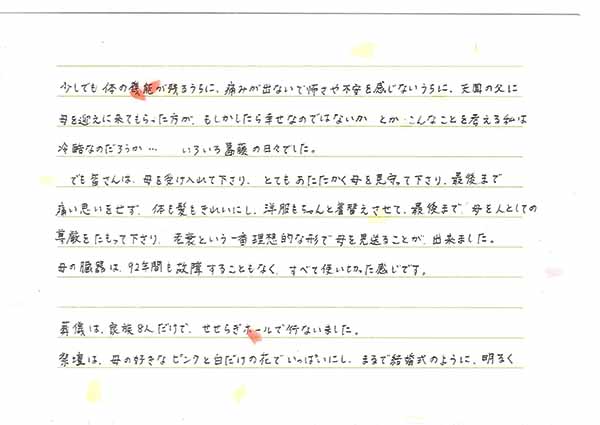 少しでも体の機能が残るうちに、痛みが出ないで怖さや不安を感じないうちに、天国の父に
母を迎えに来てもらった方が、もしかしたら幸せなのではないか とか…こんなことを考える私は
冷酷なのだろうか… いろいろ葛藤の日々でした。
でも皆さんは、母を受け入れて下さり、とてもあたたかく母を見守って下さり、最後まで
痛い思いをせず、体も髪もきれいにし、洋服もちゃんと着替えさせて、最後まで、母を人としての
尊厳をたもって下さり、老衰という一番理想的な形で母を見送ることが、出来ました。
母の臓器は、92年間も故障することもなく、すべて使い切った感じです。
葬儀は、家族8人だけで、せせらぎホールで行ないました。
祭壇は、母の好きなピンクと白だけの花でいっぱいにし、まるで結婚式のように、明るく